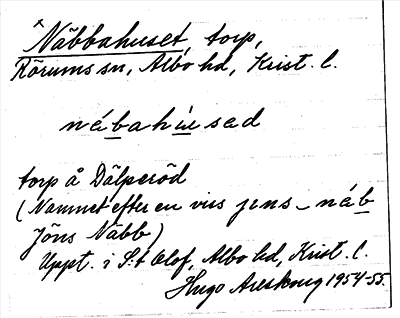 × Näbbahuset, torp,
Rörums sn, Albo hd, Krist. l.
nábahúsad
torp å Dälperöd
(Namnet efter en viss jens - náb
Jöns Näbb)
Uppt. i S:t Olof, Albo hd, Krist. l.
Hugo Areskoug 1954-55.